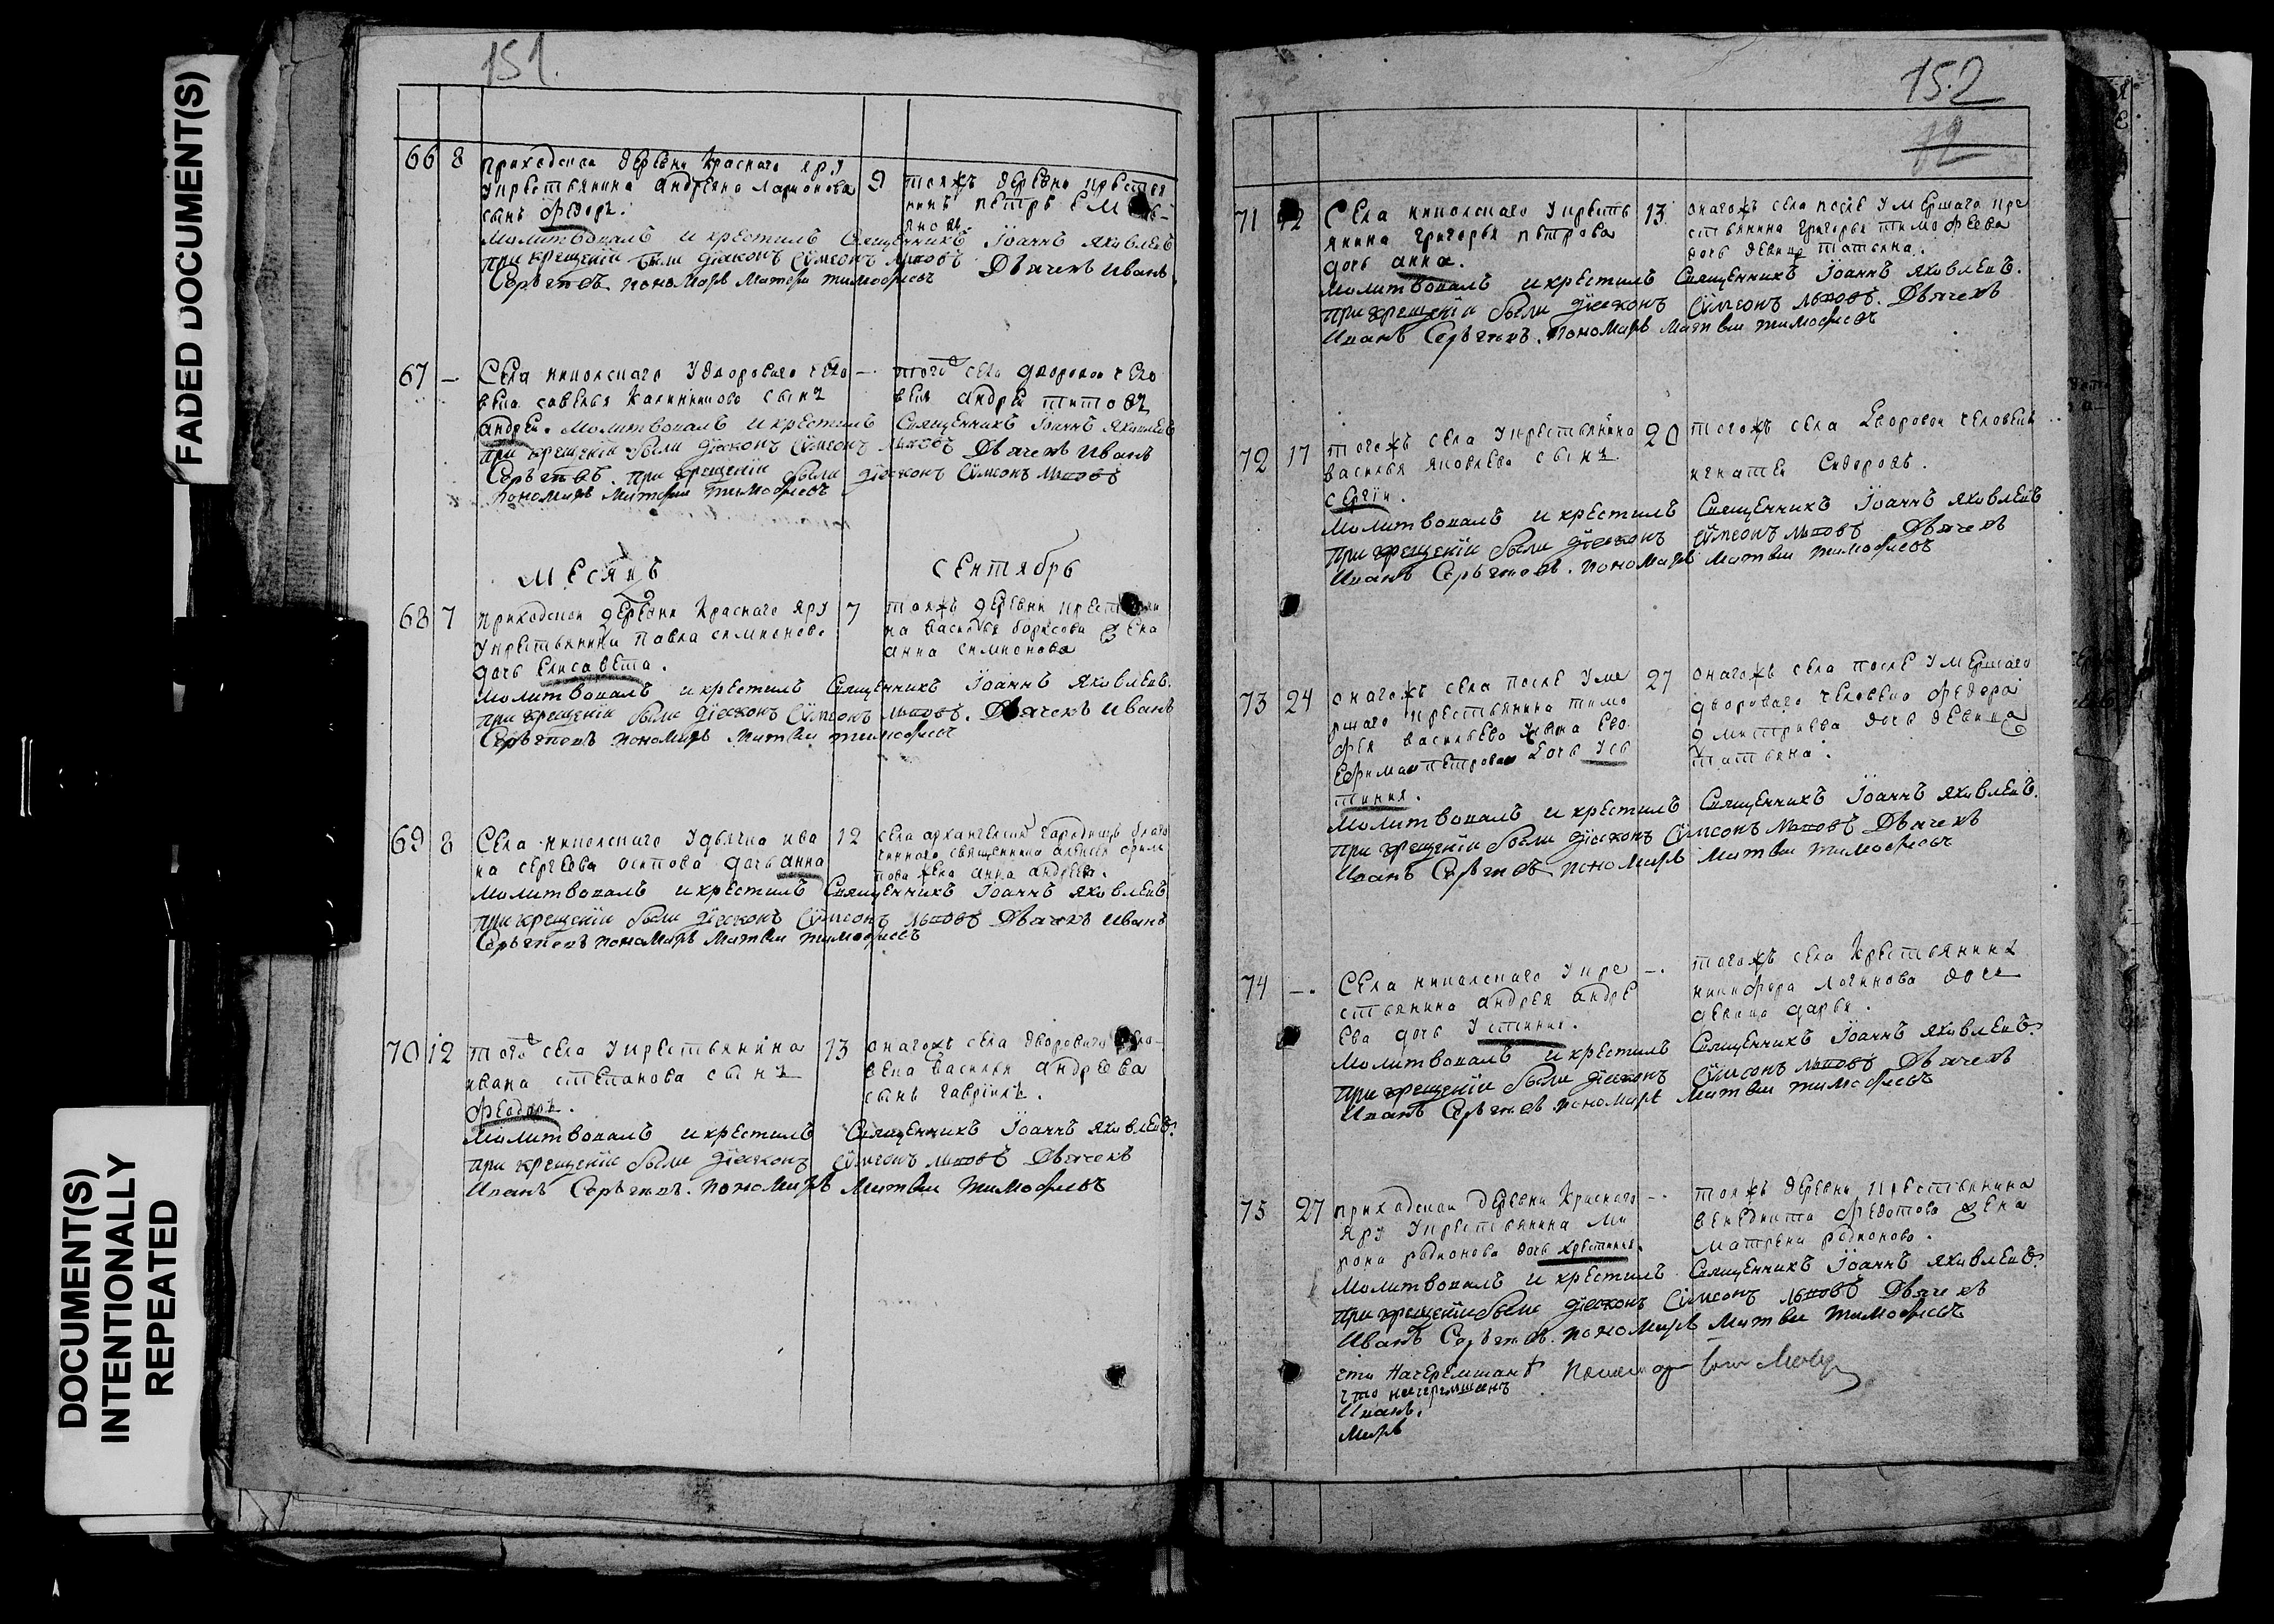 FADED DOCUMENT(S)
DOCUMENT(S)
INTENTIONALLY
REPEATED
151.
66 8 приходской деревни Краснаго яру
у крестьянина андреяна ларионова
сынъ федоръ.
9 тояжъ деревни крестья
нинъ петръ
молитвовалъ и крестилъ священникъ Іоаннъ яковлевъ
при крещеніи были діаконъ Сѵмеонъ Дьячекъ иванъ
Сергеевъ пономарь матвей тимофеевъ
67 — Села николскаго у двороваго чело
века савелья калинникова сынъ
андрей. молитвовалъ и крестилъ Священникъ Іоаннъ яковлевъ
—. того села дворовой чело
векъ андрей титовъ
при крещеніи были діаконъ Сѵмеонъ Дьячекъ иванъ
Сергеевъ. при крещеніи были діаконъ Сѵмеонъ
пономарь матвей тимофеевъ
месяцъ сентябрь
68 7 приходской деревни Краснаго яру
у крестьянина павла симионова
дочь елисавета.
7 тояжъ деревни крестьяни
на василья борисова жена
анна симионова
молитвовалъ и крестилъ Священникъ Іоаннъ яковлевъ.
при крещеніи были діаконъ Сѵмеонъ Дьячекъ иванъ
Сергеевъ пономарь матвей тимофеевъ
69 8 Села николскаго у дьячка ива
на сергеева осипова дочь анна
12 села архангелска городищъ благо
чиннаго священника алексея
жена анна андреева.
молитвовалъ и крестилъ Священникъ Іоаннъ яковлевъ
при крещеніи были діаконъ Сѵмеонъ Дьячекъ иванъ
Сергеевъ пономарь матвей тимофеевъ
70 12 того села у крестьянина
ивана степанова сынъ
феодоръ.
13 онагожъ села двороваго чело
века василья андреева
сынъ гавріилъ.
молитвовалъ и крестилъ Священникъ Іоаннъ яковлевъ.
при крещеніи были діаконъ Сѵмеонъ Дьячекъ
иванъ Сергеевъ. пономарь матвей тимофеевъ
152
72
71 12 Села николскаго у кресть
янина григорья петрова
дочь анна.
13 онагожъ села после умершаго кре
стьянина григорья тимофеева
дочь девица татьяна.
молитвовалъ и крестилъ Священникъ Іоаннъ яковлевъ.
при крещеніи были діаконъ Сѵмеонъ Дьячекъ
иванъ Сергеевъ. пономарь матвей тимофеевъ
72 17 тогожъ села у крестьянина
василья яковлева сынъ
сергій.
20 тогожъ села дворовой человекъ
игнатей Сидоровъ.
молитвовалъ и крестилъ Священникъ Іоаннъ яковлевъ
при крещеніи были діаконъ Сѵмеонъ Дьячекъ
иванъ Сергеевъ. пономарь матвей тимофеевъ
73 24 онагожъ села после уме
ршаго крестьянина тимо
фея васильева жена ево
ефимия петрова дочь ус
тиния.
27 онагожъ села после умершаго
двороваго человека федора
дмитриева дочь девица
татьяна.
молитвовалъ и крестилъ Священникъ Іоаннъ яковлевъ.
при крещеніи были діаконъ Сѵмеонъ Дьячекъ
иванъ Сергеевъ пономарь матвей тимофеевъ
74 —. Села николскаго у кре
стьянина андрея андре
ева дочь устиния.
—. тогожъ села крестьянина
никифора логинова дочь
девица дарья.
молитвовалъ и крестилъ Священникъ Іоаннъ яковлевъ.
при крещеніи были діаконъ Сѵмеонъ Дьячекъ
иванъ Сергеевъ пономарь матвей тимофеевъ
75 27 приходской деревни Краснаго
яру у крестьянина ми
рона родионова дочь христиния.
—. тояжъ деревни крестьянина
венедикта федотова жена
матрена родионова.
молитвовалъ и крестилъ Священникъ Іоаннъ яковлевъ.
при крещеніи были діаконъ Сѵмеонъ Дьячекъ
иванъ Сергеевъ. пономарь матвей тимофеевъ
иванъ.
марь